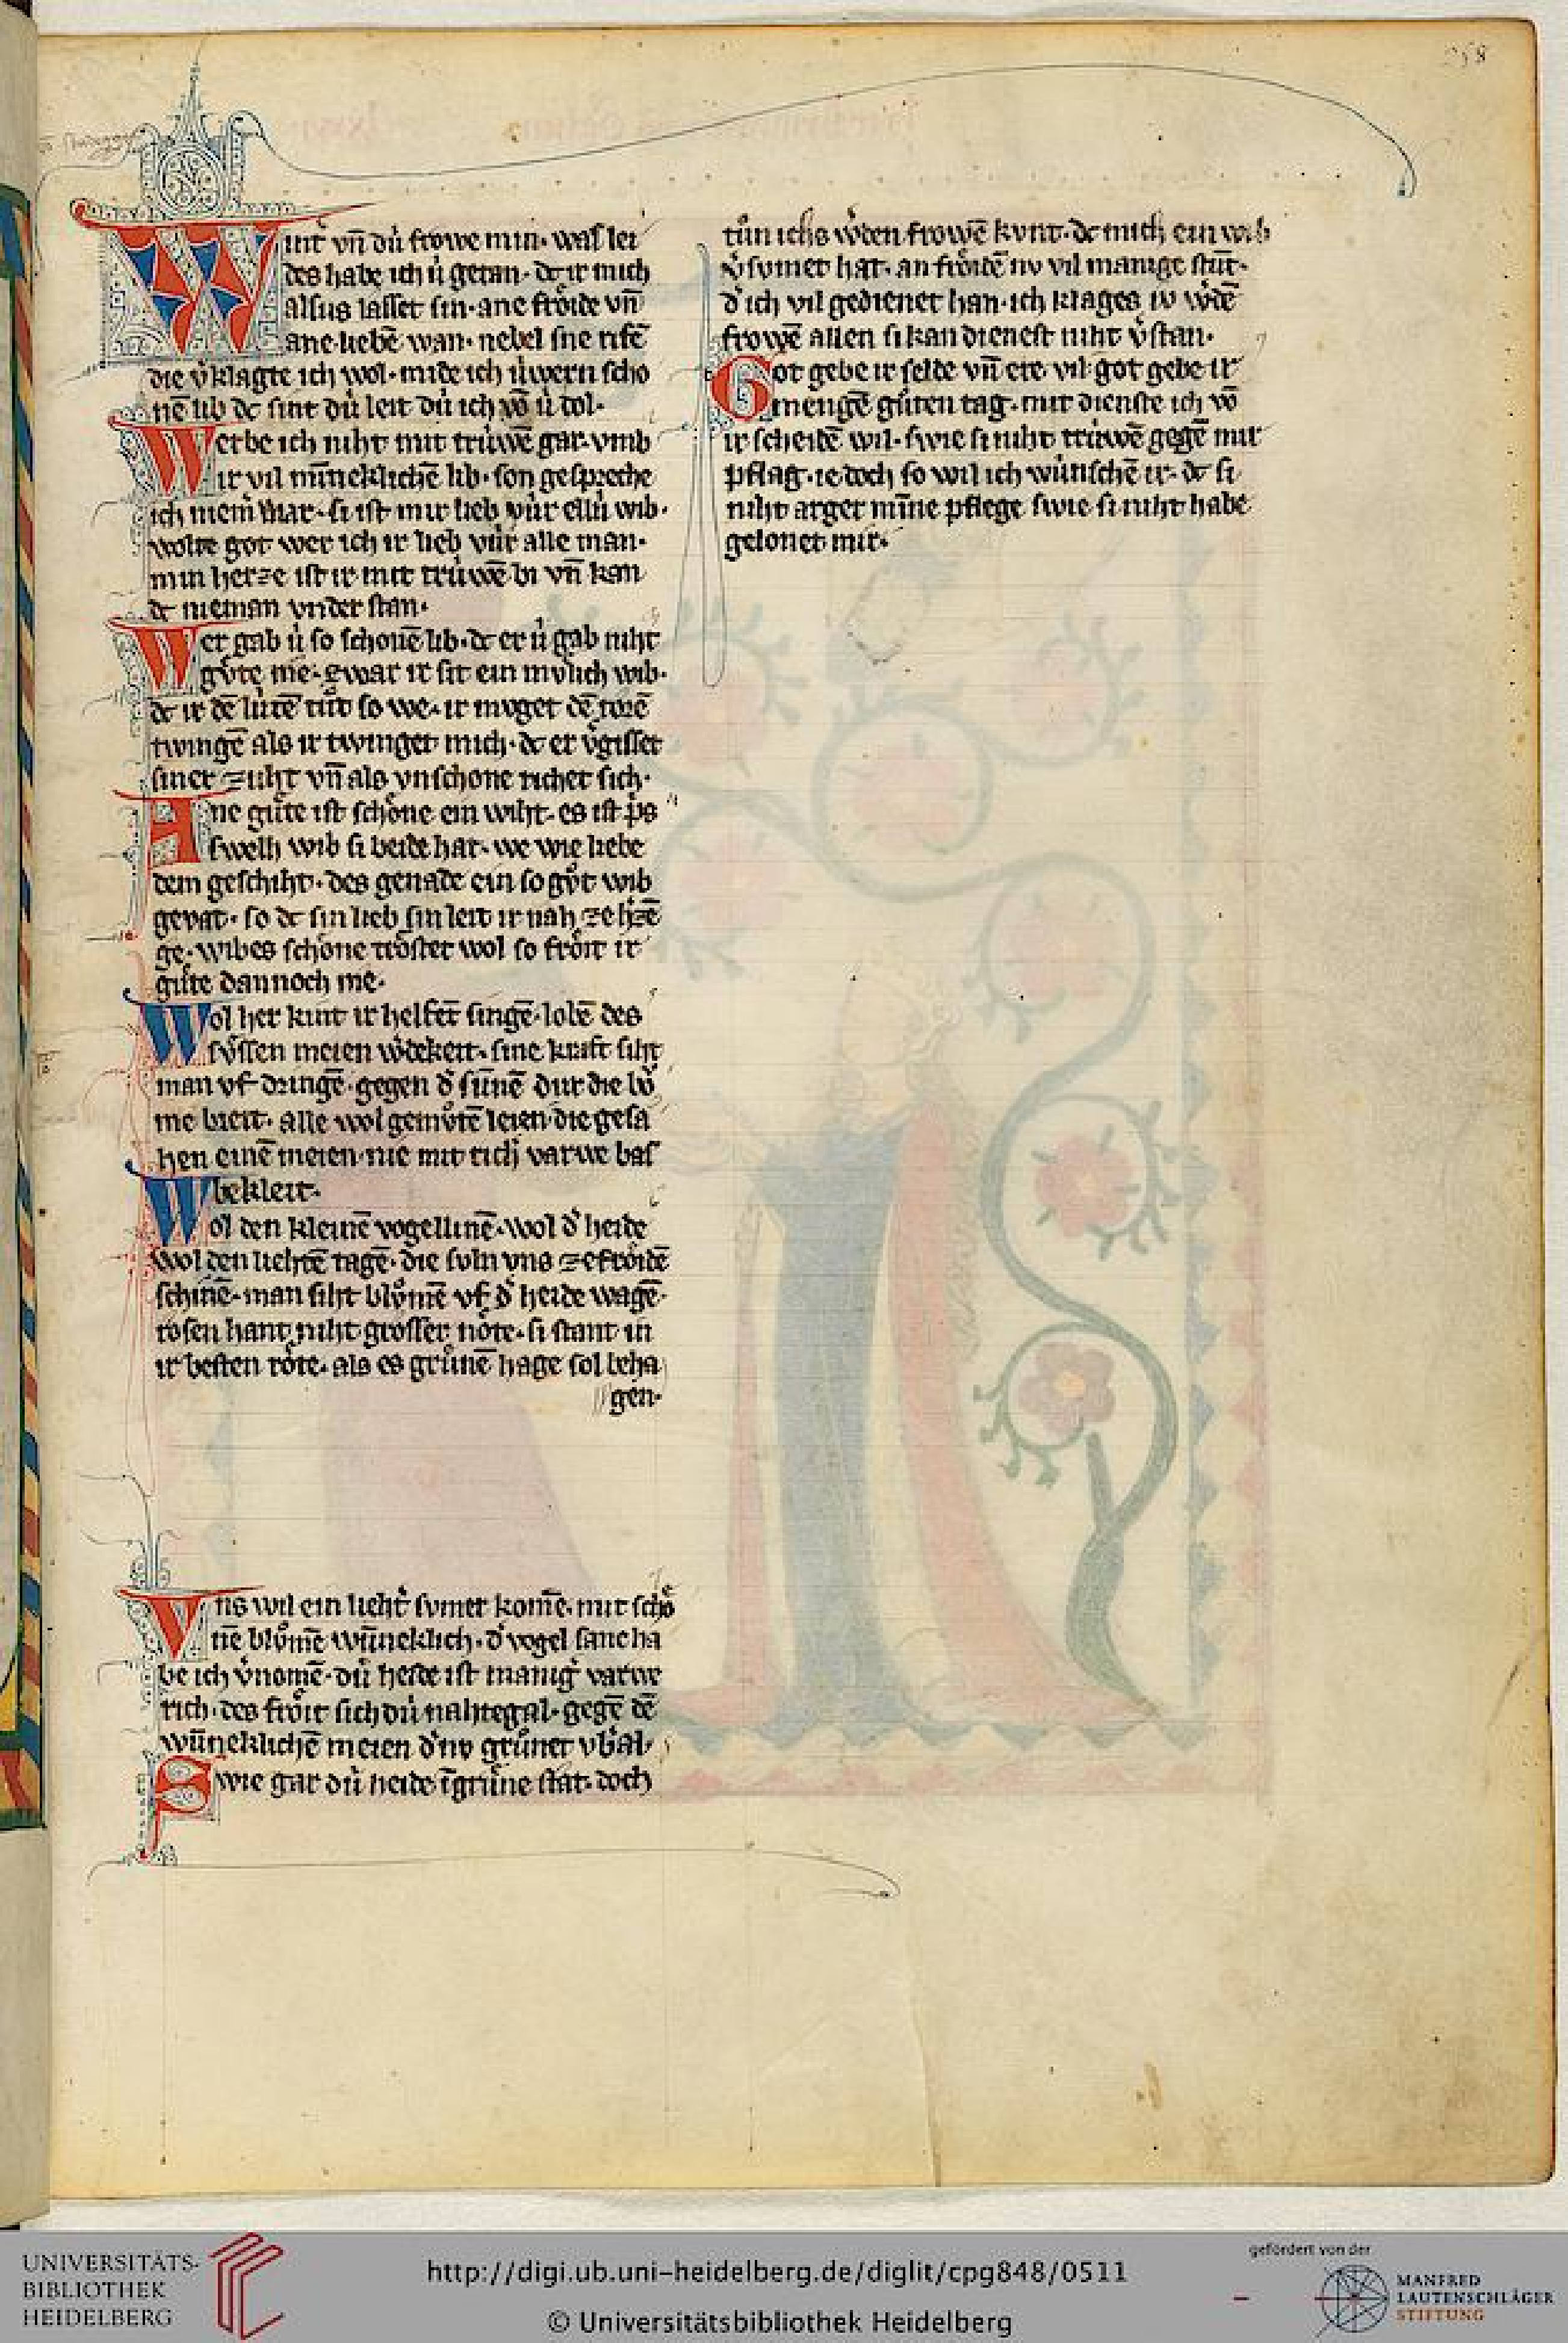 258
Wint vn̄ dú frowe min. was lei
des habe ich ú getan. dc ir mich
alsus lasset sin. ane froͤide vn̄
ane liebē wan. nebel sne rifē
die v̓klagte ich wol. mide ich úwern scho
nē lib dc sint dú leit dú ich vō ú dol.
Werbe ich niht mit trúwē gar. vmb
ir vil mīneklichē lib. son gespreche
ich niem̄ war. si ist mir lieb vúr ellú wib.
wolte got wer ich ir lieb vúr alle man.
min herze ist ir mit trúwē bi vn̄ kan
dc nieman vnder stan.
Wer gab ú so schonē lib. dc er ú gab niht
guͤte nie. zwar ir sit ein mv̓lich wib.
dc ir dē lútē tuͦt so we. ir muget dē torē
twingē als ir twinget mich. dc er v̓gisset
siner zuht vn̄ als vnschone richet sich.
Ane guͤte ist schoͤne ein wiht. es ist p̓s
swelh wib si beide hat. we wie liebe
dem geschiht. des genade ein so guͦt wib
gevat. so dc sin lieb sin leit ir nah ze h̓zē
ge. wibes schoͤne troͤstet wol so froͤit ir
guͤte dannoch me.
Wol her kint ir helfēt singē. lobē des
suͤssen meien w̓dekeit. sine kraft siht
man vf dringē. gegen d̓ sūnē dur die boͮ
me breit. alle wol gemuͦtē leien. die gesa
hen einē meien. nie mit rich̓ varwe bas
bekleit.
Wol den kleinē vogellinē. wol d̓ heide
wol den liehtē tagē. die suln vns ze froͤidē
schinē. man siht bluͦmē vf d̓ heide wagē.
rosen hant niht grosser noͤte. si stant in
ir besten roͤte. als es gruͤnē hage sol beha
gen.
Vns wil ein lieht̓ sumer komē. mit schoͤ
nē bluͦmē wūneklich. d̓ vogel sanc ha
be ich v̓nomē. dú heide ist manig̓ varwe
rich. des froͤit sich dú nahtegal. gegē dē
wūneklichē meien d̓ nv gruͤnet vb̓al.
Swie gar dú heide ī gruͤne stat. doch
tuͦn ichs w̓den frowē kvnt. dc mich ein wib
v̓sumet hat. an froͤidē nv vil manige stūt.
d̓ ich vil gedienet han. ich klages iv w̓dē
frowē allen si kan dienest niht v̓stan.
Got gebe ir selde vn̄ ere vil. got gebe ir
mengē guͦten tag. mit dienste ich vō
ir scheidē wil. swie si niht trúwē gegē mir
pflag. iedoch so wil ich wúnschē ir. dc si
niht arger mīne pflege swie si niht habe
gelonet mir.
UNIVERSITÄTS-
BIBLIOTHEK
HEIDELBERG
http://digi.ub.uni-heidelberg.de/diglit/cpg848/0511
© Universitätsbibliothek Heidelberg
gefördert von der
MANFRED
LAUTENSCHLÄGER
STIFTUNG